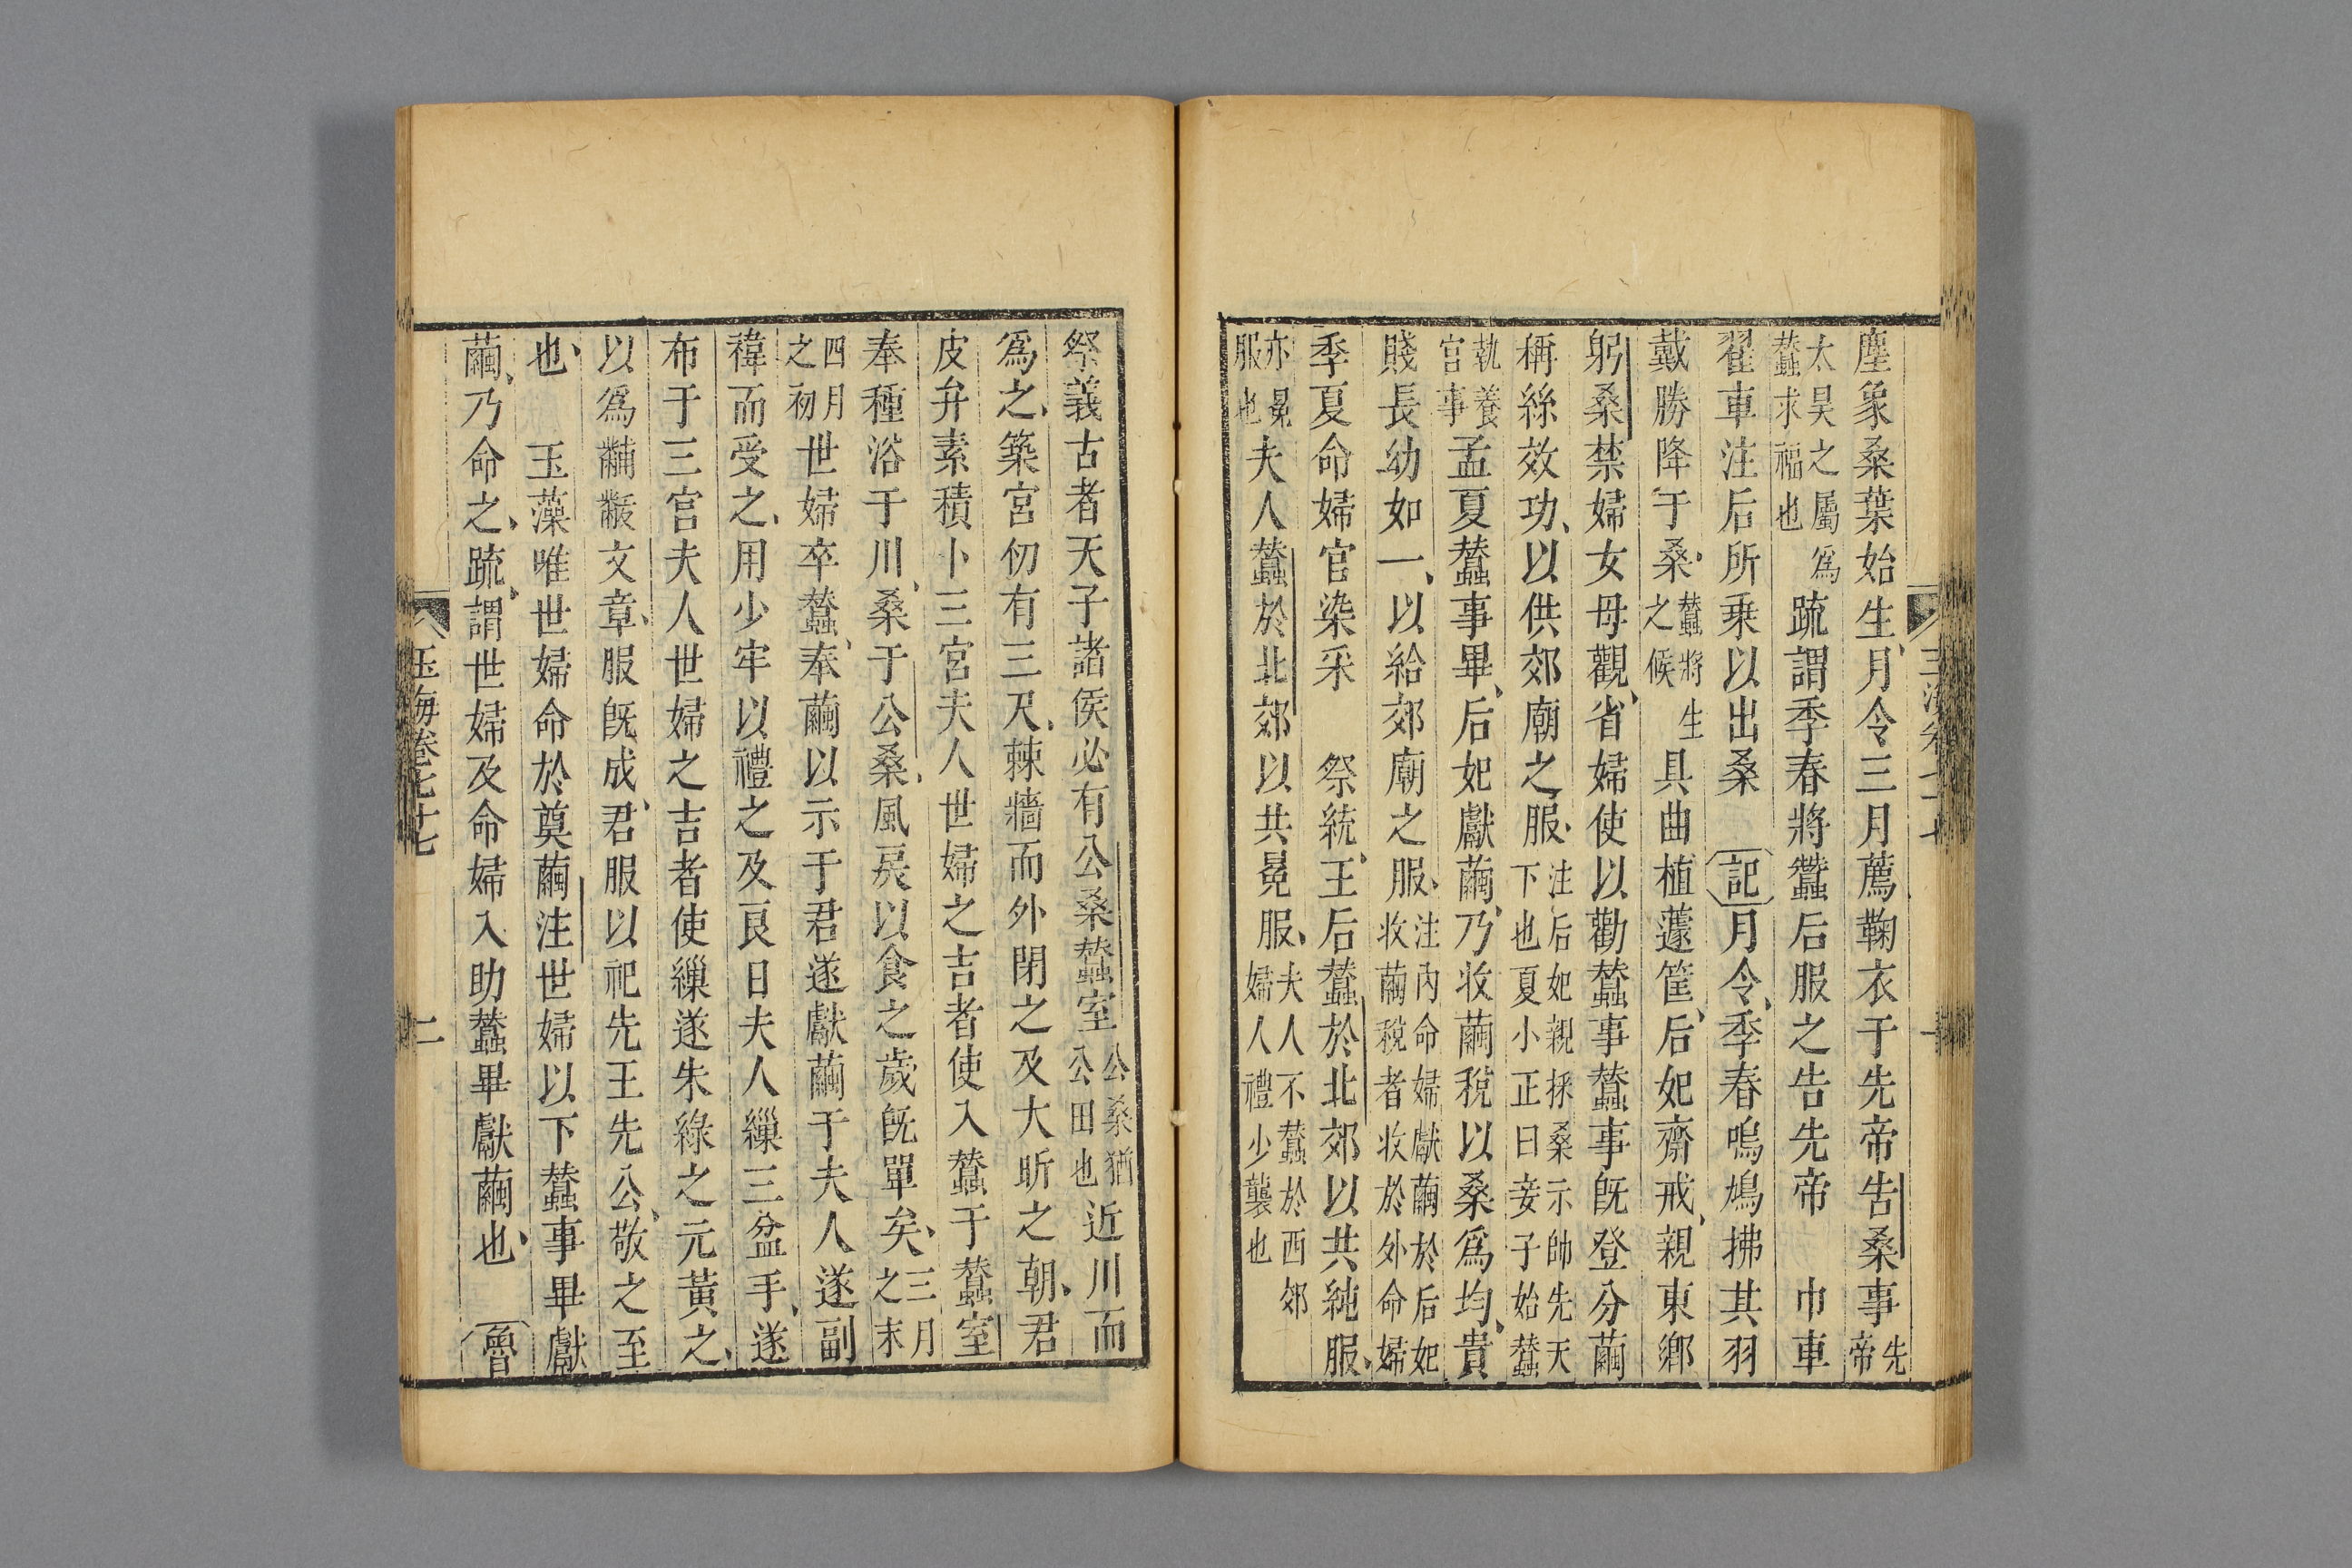 塵象桑葉始生月令三月薦鞠衣于先帝告桑事先帝
太昊之屬爲蠶求福也疏謂季春將蠶后服之告先帝　巾車
翟車注后所乗以出桑　記月令季春鳴鳩拂其羽
戴勝降于桑蠶將生之候具曲植蘧筐后妃齊戒親東鄉
躬桑禁婦女毋觀省婦使以勸蠶事蠶事旣登分繭
稱絲效功以供郊廟之服注后妃親採桑示帥先天下也夏小正曰妾子始蠶
執養宮事孟夏蠶事畢后妃獻繭乃收繭稅以桑爲均貴
賤長幼如一以給郊廟之服注內命婦獻繭於后妃收繭稅者收於外命婦
季夏命婦官染采　祭統王后蠶於北郊以共純服
亦冕服也夫人蠶於北郊以共冕服夫人不蠶於西郊婦人禮少變也
祭義古者天子諸侯必有公桑蠶室公桑猶公田也近川而
爲之築宮仞有三尺棘牆而外閉之及大昕之朝君
皮弁素積卜三宮夫人世婦之吉者使入蠶于蠶室
奉種浴于川桑于公桑風戾以食之歲旣單矣三月之末
四月之初世婦卒蠶奉繭以示于君遂獻繭于夫人遂副
褘而受之用少牢以禮之及良日夫人繅三盆手遂
布于三宮夫人世婦之吉者使繅遂朱綠之元黃之
以爲黼黻文章服旣成君服以祀先王先公敬之至
也　玉藻唯世婦命於奠繭注世婦以下蠶事畢獻
繭乃命之疏謂世婦及命婦入助蠶畢獻繭也　魯
玉海卷七十七　二